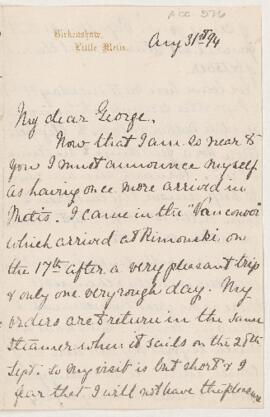 ACC 576
Birkenshaw,
Little Metis.
Aug 31st 94
My dear George,
Now that I am so near to
you I must announce myself
as having once more arrived in
Metis. I came in the "Vancouver"
which arrived at Rimouski on
the 17th after a very pleasant trip
& only one very rough day. My
orders are to return in the same
steamer when it sails on the 28th
Sept. so my visit is but short & I
fear that I will not have the pleasure